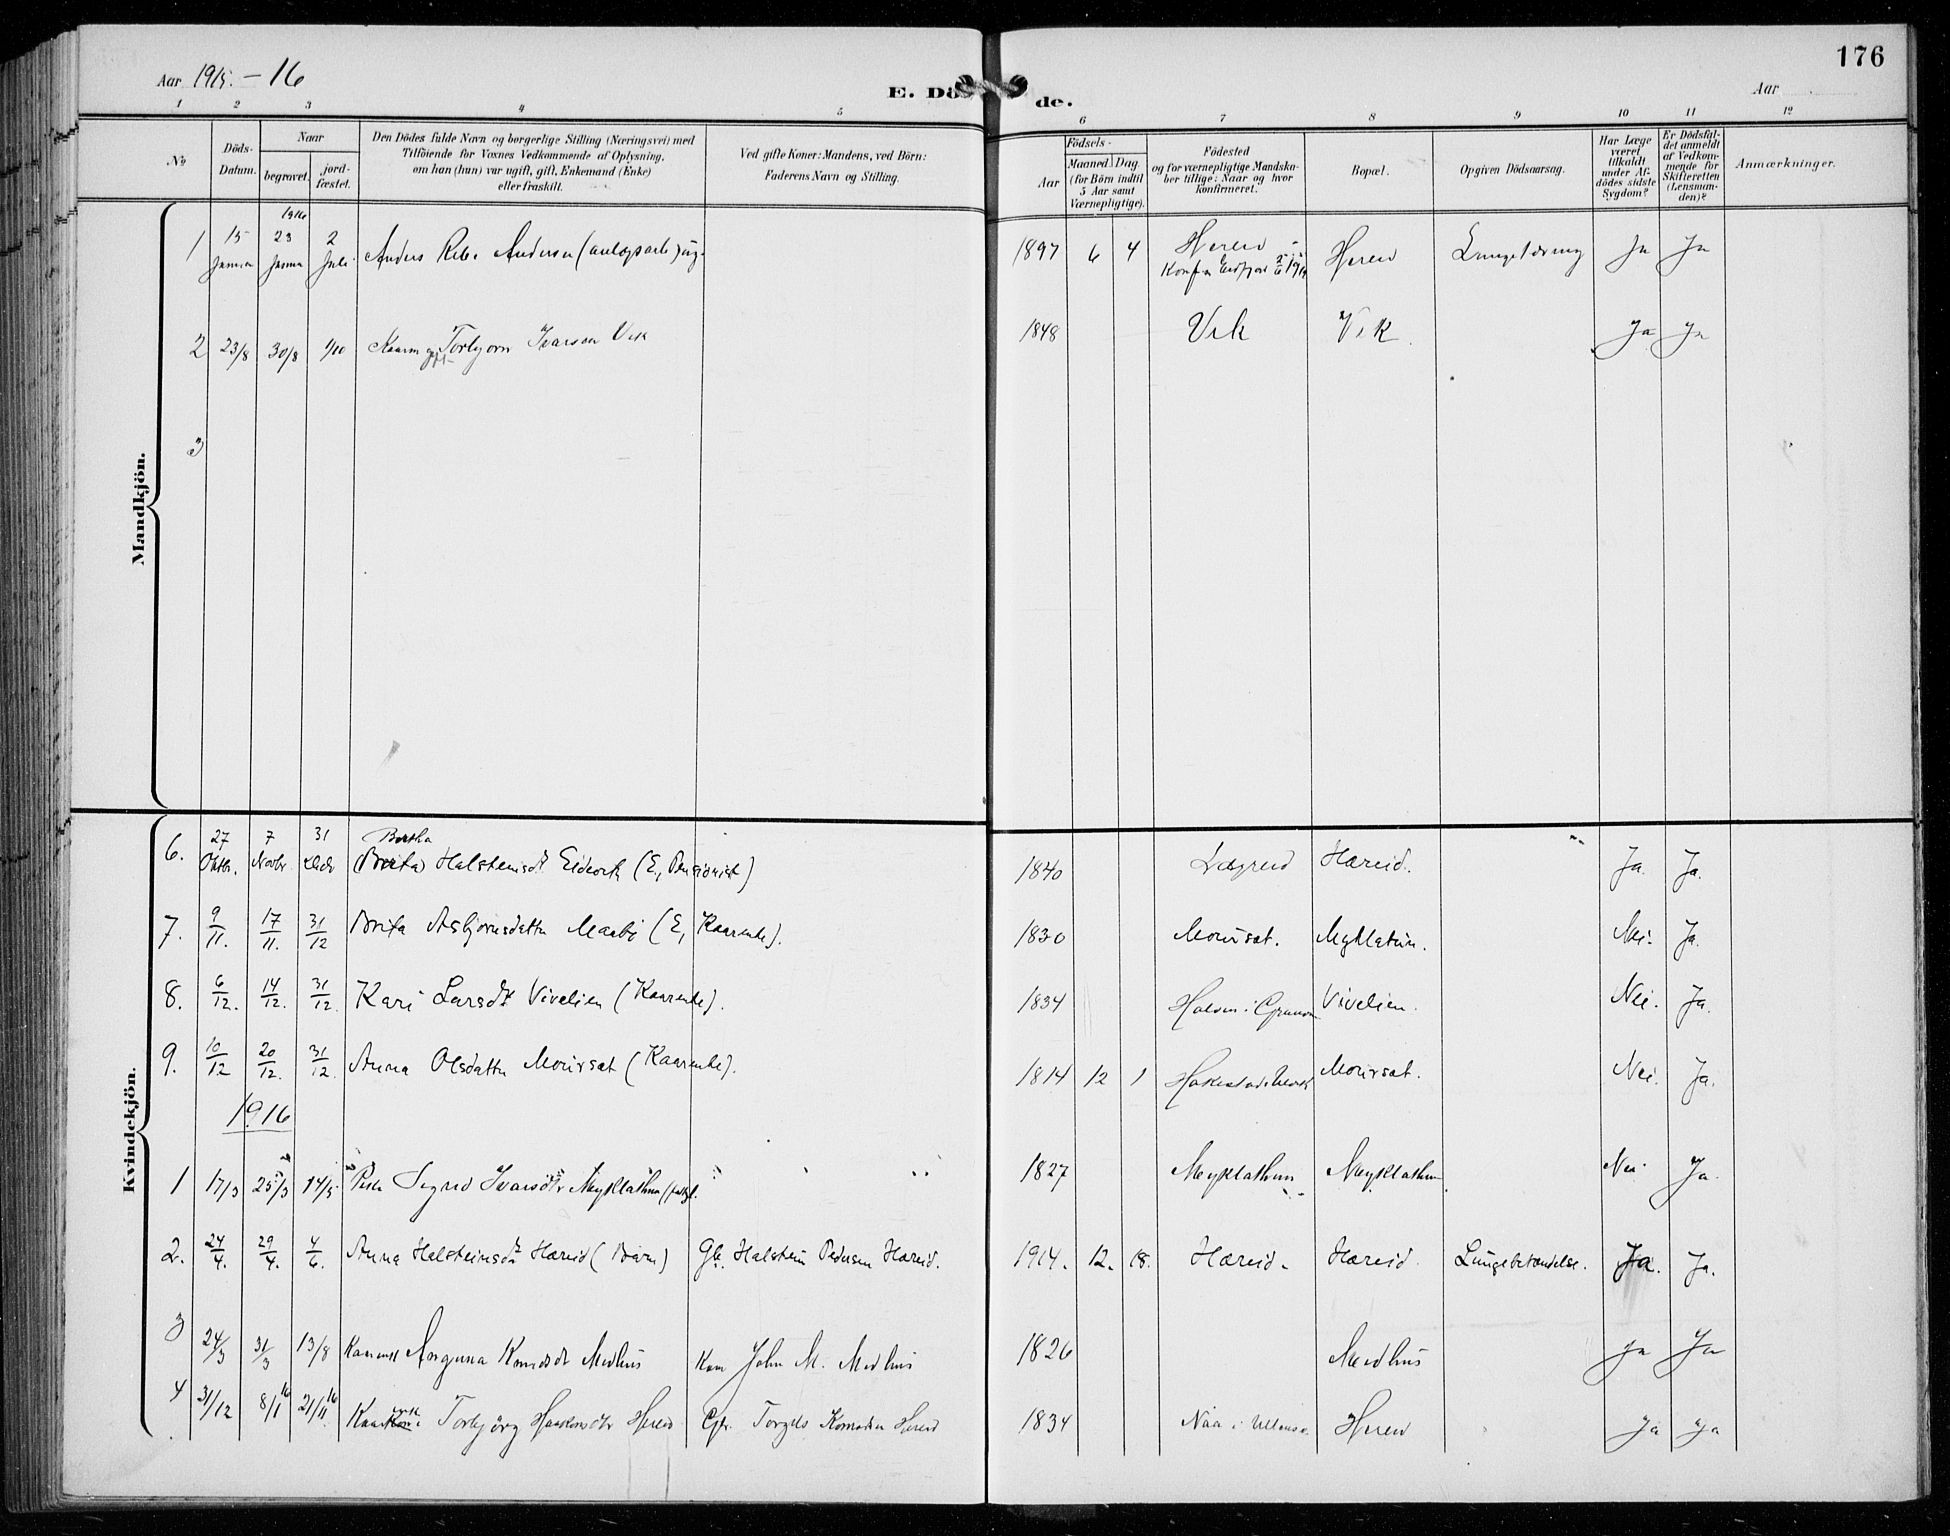 176
Aar 1915. - 16
E. Dö
de.
Aar
1 2 3 4 5 6 7 8 9 10 11 12
No
Döds-Datum.
Naar
begravet.
jord-fæstet.
Den Dödes fulde Navn og borgerlige Stilling (Næringsvei) med
Tilföiende for Voxnes Vedkommende af Oplysning,
om han (hun) var ugift, gift, Enkemand (Enke)
eller fraskilt.
Ved gifte Koner: Mandens, ved Börn:
Faderens Navn og Stilling.
Födsels-
Aar
Maaned. Dag.
(for Börn indtil
5 Aar samt
Værnepligtige).
Födested
og for værnepligtige Mandska-
ber tillige: Naar og hvor
konfirmeret.
Bopæl.
Opgiven Dödsaarsag.
Har Læge
været
tilkaldt
under Af-
dödes sidste
Sygdom?
Er Dödsfal-
det anmeldt
af Vedkom-
mende for
Skifteretten
(Lensman-
den)?
Anmærkninger.
Mandkjön.
1916
1 15 Janua 23 Janua 2 Juli Anders Andersen 1897 6 4 Hereid Hereid Lungetæring Ja Ja
2 23/8 30/8 1/10 Kaarm gift Torbjørn Ivarson Vik 1848 Vik Vik Ja Ja
3
Kvindekjön.
Bertha
6. 27 Oktbr. 7 Novbr 31 Decbr (Brita) Halsteinsdt Eidnork (E, Pensionist) 1840 Lægreid Hæreid. Ja. Ja.
7. 9/11. 17/11. 31/12 Brita Asbjørnsdatter Maabø (E, Kaarenke). 1830 Moursæt. Nei. Ja.
8. 6/12. 14/12. 31/12. Kari Larsdt Vivelien (Kaarenke). 1834 Vivelien. Nei. Ja.
9. 10/12 20/12. 31/12. Anna Olsdatter Moursæt (Kaarenke). 1814 12 1 Moursæt. Nei. Ja.
1916
1 17/3 25/3 14/5 Sigrid Ivarsdtr Myklathun 1827 Myklathun Myklathun. Nei. Ja.
2. 24/4. 29/4. 4/6. Anna Halsteinsdt Hæreid (Barn) Gb. Halstein Pedersen Hæreid. 1914. 12. 18. Hæreid. Hæreid. Lungebetændelse. Ja. Ja.
3 24/3 31/3 13/8 Kaarenk Knudsdt Medhus Kaar John M. Medhus 1826 Medhus Ja Ja
4 31/12 8/1 16 21/11 16 Torbjørg Haakonsdtr Hereid Gbr. Torgels Hereid 1834 Hereid Ja Ja